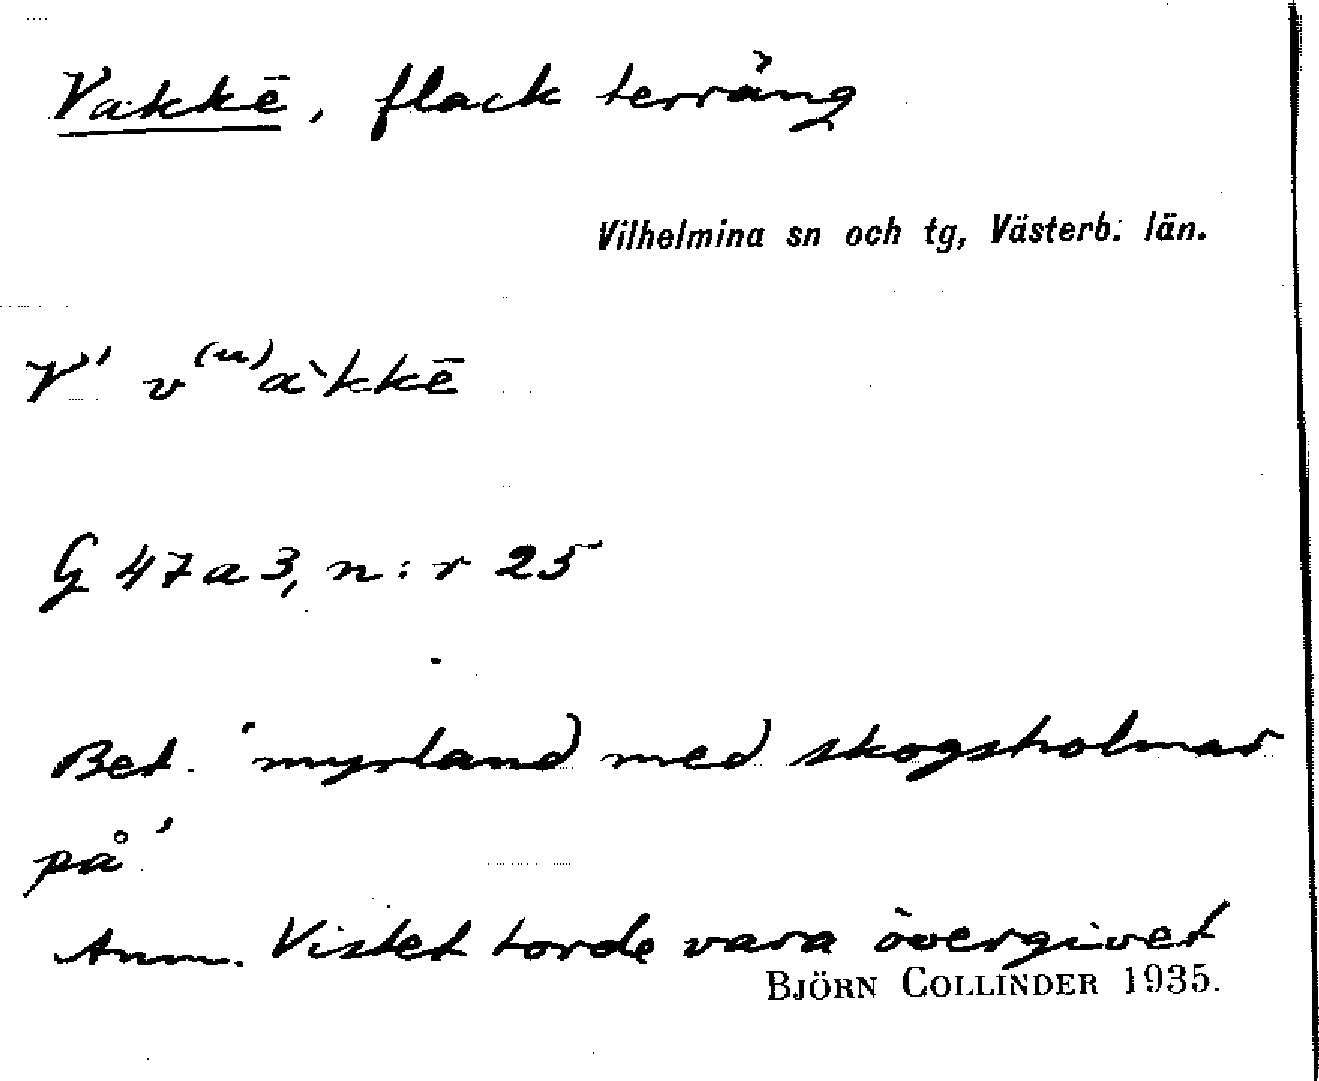 Vakkē, flack terräng
Vilhelmina sn och tg, Västerb. län.
V' v⁽ᵘ⁾a`kkē
G 47 a 3, n:r 25
Bet. 'myrland med skogsholmar
på'
Anm. Vistet torde vara övergivet
BJÖRN COLLINDER 1935.